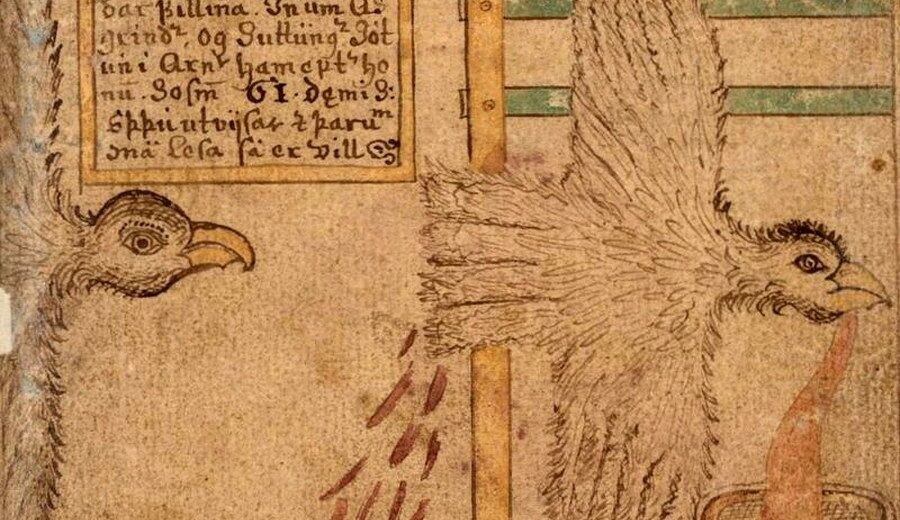 þar þillina. Jnum Aſ
grindꝛ, og Suttungꝛ Jöt
un i Arnꝛ ham eptꝛ ho
nū. Soſm GI. dęmi S:
Sþþu utvijſar ⁊ þaruᵐ
mä leſa ſä er vill